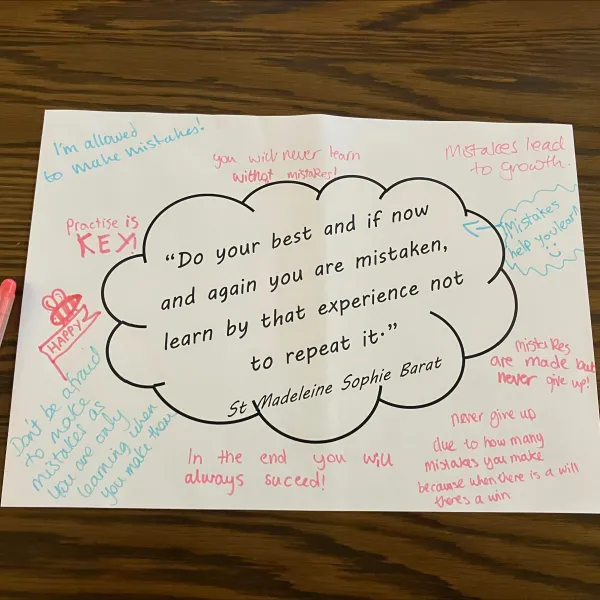 I'm allowed
to make mistakes!
you will never learn
without mistakes!
Mistakes lead
to growth.
Practise is
KEY
Mistakes
help you learn
"Do your best and if now
and again you are mistaken,
learn by that experience not
to repeat it."
St Madeleine Sophie Barat
HAPPY
mistakes
are made but
never give up!
Don't be afraid
to make
mistakes as
you are only
learning when
you make them
In the end you will
always succeed!
never give up
due to how many
mistakes you make
because when there is a will
theres a win